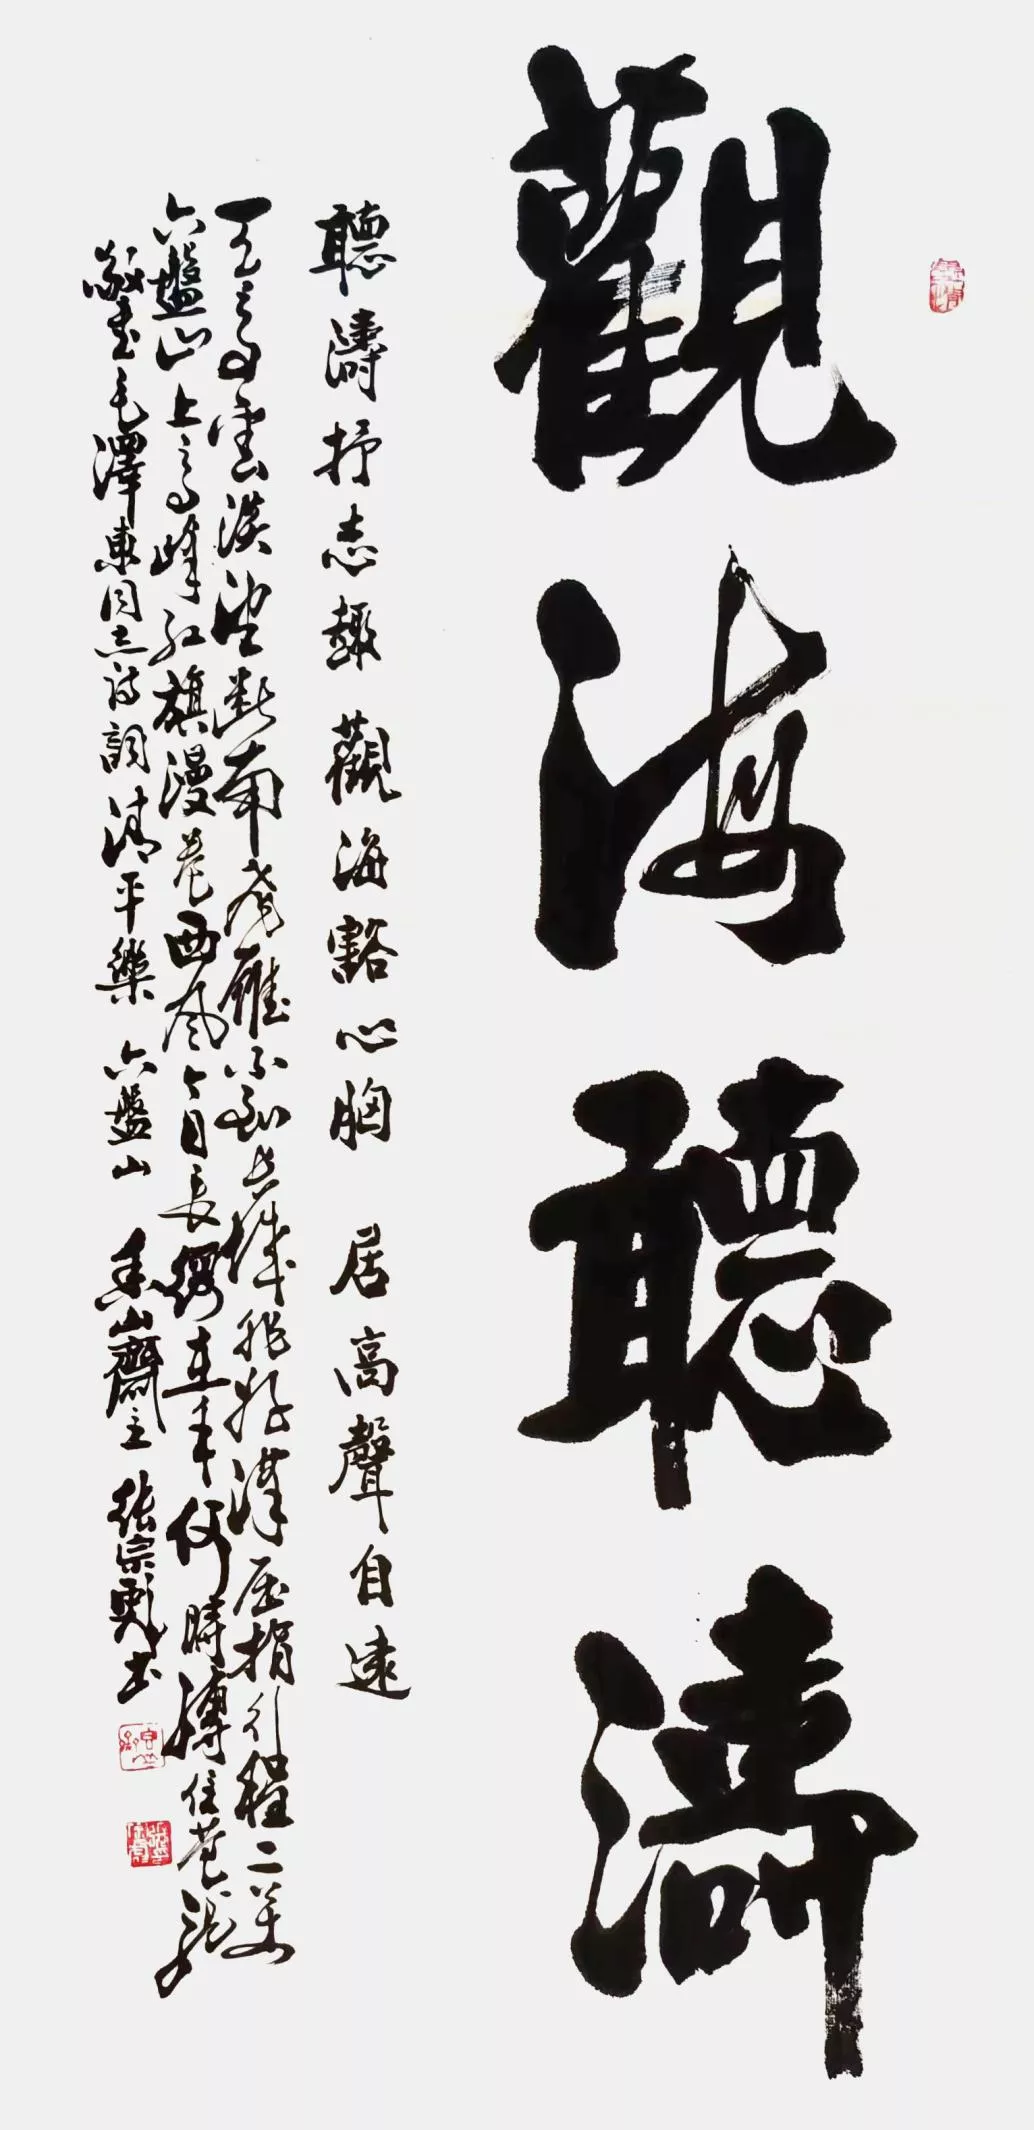 觀海聽濤
聽濤抒志趣 觀海豁心胸 居高聲自遠
天高雲淡望斷南飛雁不到長城非好漢屈指行程二萬
六盤山上高峰紅旗漫卷西風今日長纓在手何時縛住蒼龍
敬書毛澤東同志詩詞清平樂 六盤山 山齋主 張宗書